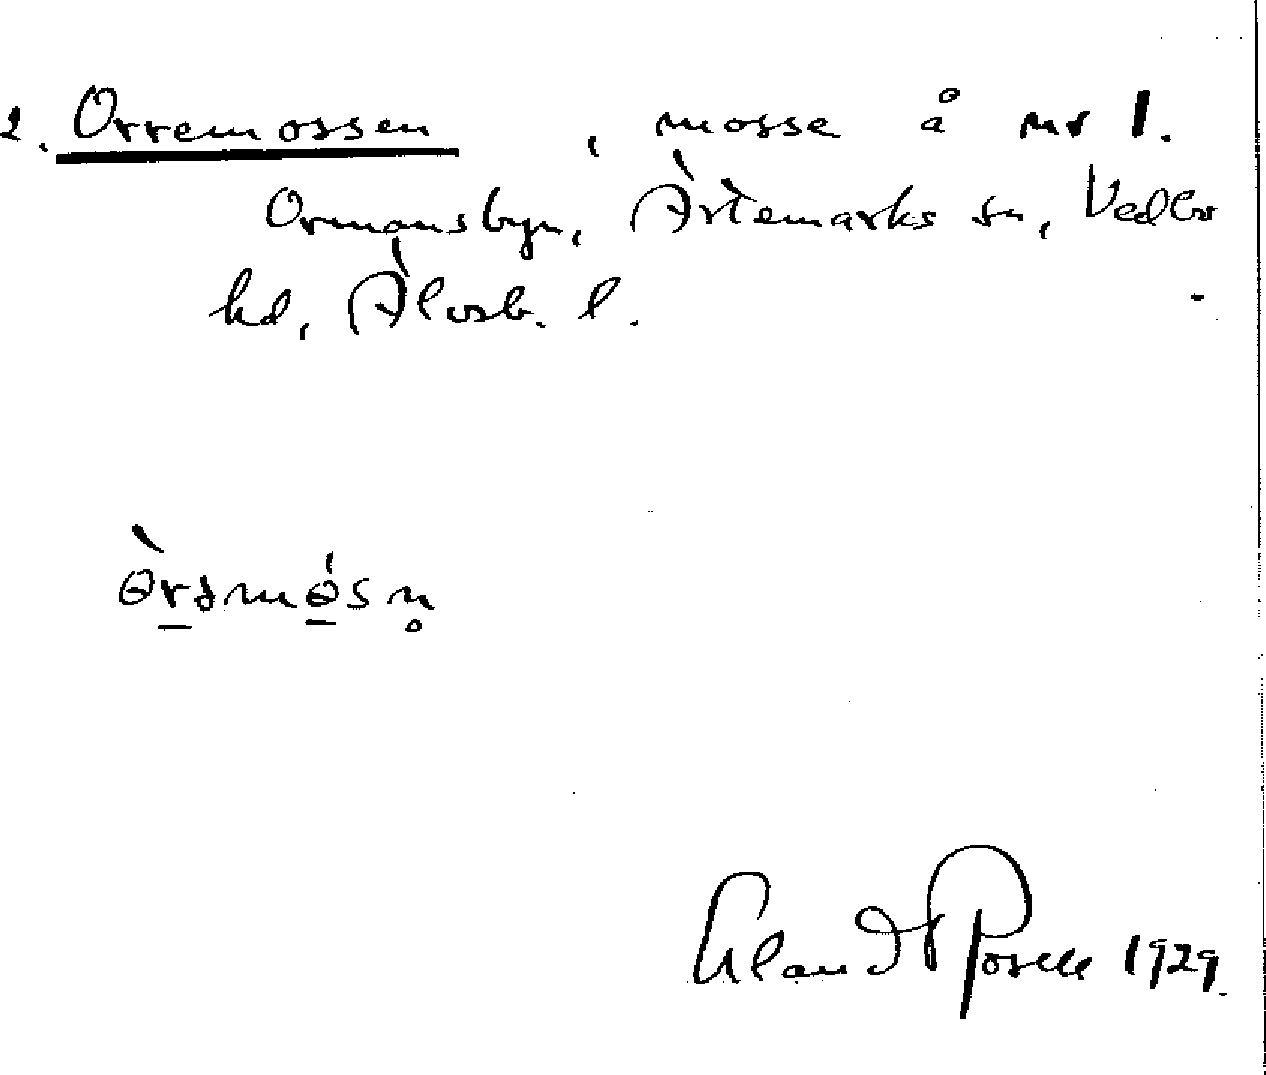 2. Orremossen, mosse å nr 1.
Ormansbyn, Ärtemarks sn, Vedbo
hd, Älvsb. l.
ɵ̀rəmɵ́sn̥
Erland Rosell 1929.